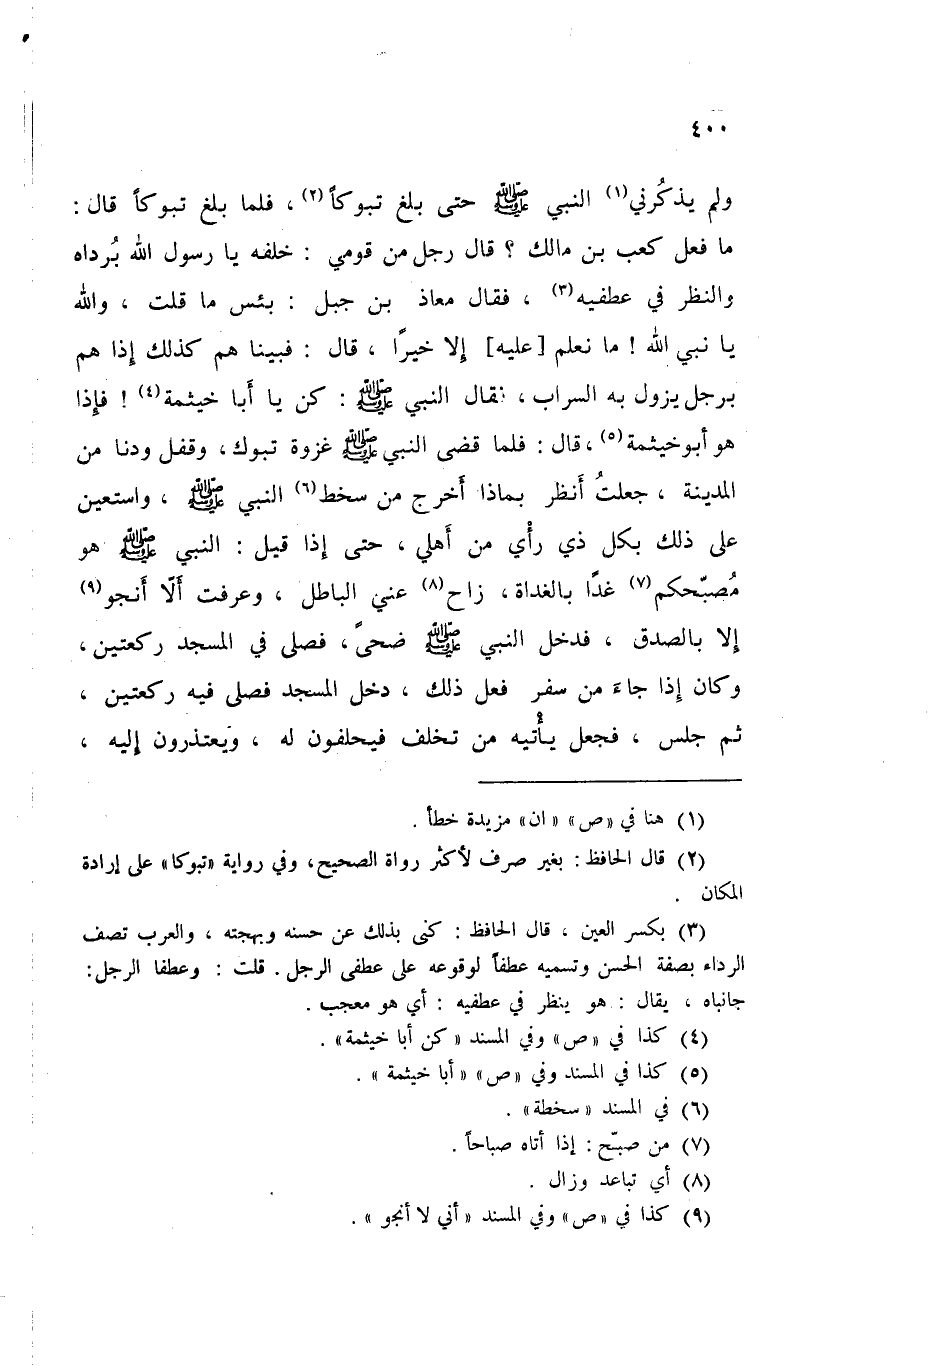 ٤٠٠
ولم يذكُرني(١) النبي ﷺ حتى بلغ تبوكاً(٢) ، فلما بلغ تبوكاً قال :
ما فعل كعب بن مالك ؟ قال رجل من قومي : خلفه يا رسول الله بُرداه
والنظر في عطفيه(٣) ، فقال معاذ بن جبل : بئس ما قلت ، والله
يا نبي الله ! ما نعلم [عليه] إلا خيرًا ، قال : فبينا هم كذلك إذا هم
برجل يزول به السراب ، فقال النبي ﷺ : كن يا أَبا خيثمة(٤) ! فإِذا
هو أبو خيثمة(٥) ، قال : فلما قضى النبي ﷺ غزوة تبوك ، وقفل ودنا من
المدينة ، جعلتُ أَنظر بماذا أَخرج من سخط(٦) النبي ﷺ ، واستعين
على ذلك بكل ذي رأْي من أَهلي ، حتى إذا قيل : النبي ﷺ هو
مُصبّحكم(٧) غدًا بالغداة ، زاح(٨) عني الباطل ، وعرفت أَلّا أَنجو(٩)
إلا بالصدق ، فدخل النبي ﷺ ضحىً ، فصلى في المسجد ركعتين ،
وكان إذا جاءَ من سفر فعل ذلك ، دخل المسجد فصلى فيه ركعتين ،
ثم جلس ، فجعل يأْتيه من تخلف فيحلفون له ، ويعتذرون إليه ،
(١) هنا في «ص» «ان» مزيدة خطأ .
(٢) قال الحافظ : بغير صرف لأكثر رواة الصحيح ، وفي رواية «تبوكا» على إرادة
المكان .
(٣) بكسر العين ، قال الحافظ : كنى بذلك عن حسنه وبهجته ، والعرب تصف
الرداء بصفة الحسن وتسميه عطفاً لوقوعه على عطفى الرجل . قلت : وعطفا الرجل :
جانباه ، يقال : هو ينظر في عطفيه : أي هو معجب .
(٤) كذا في «ص» وفي المسند «كن أبا خيثمة» .
(٥) كذا في المسند وفي «ص» «أبا خيثمة» .
(٦) في المسند «سخطة» .
(٧) من صبّح : إذا أتاه صباحاً .
(٨) أي تباعد وزال .
(٩) كذا في «ص» وفي المسند «أني لا أنجو» .